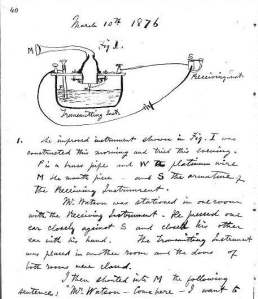 40
March 10th 1876
Fig 1.
M
S
Receiving Inst.
P
W
Transmitting Inst.
1. The improved instrument shown in Fig. I was
constructed this morning and tried this evening.
P is a brass pipe and W the platinum wire
M the mouth piece - and S the armature of
the Receiving Instrument.
Mr. Watson was stationed in one room
with the Receiving Instrument. He pressed one
ear closely against S and closed his other
ear with his hand. The Transmitting Instrument
was placed in another room and the doors of
both rooms were closed.
I then shouted into M the following
sentence: "Mr. Watson - Come here - I want to